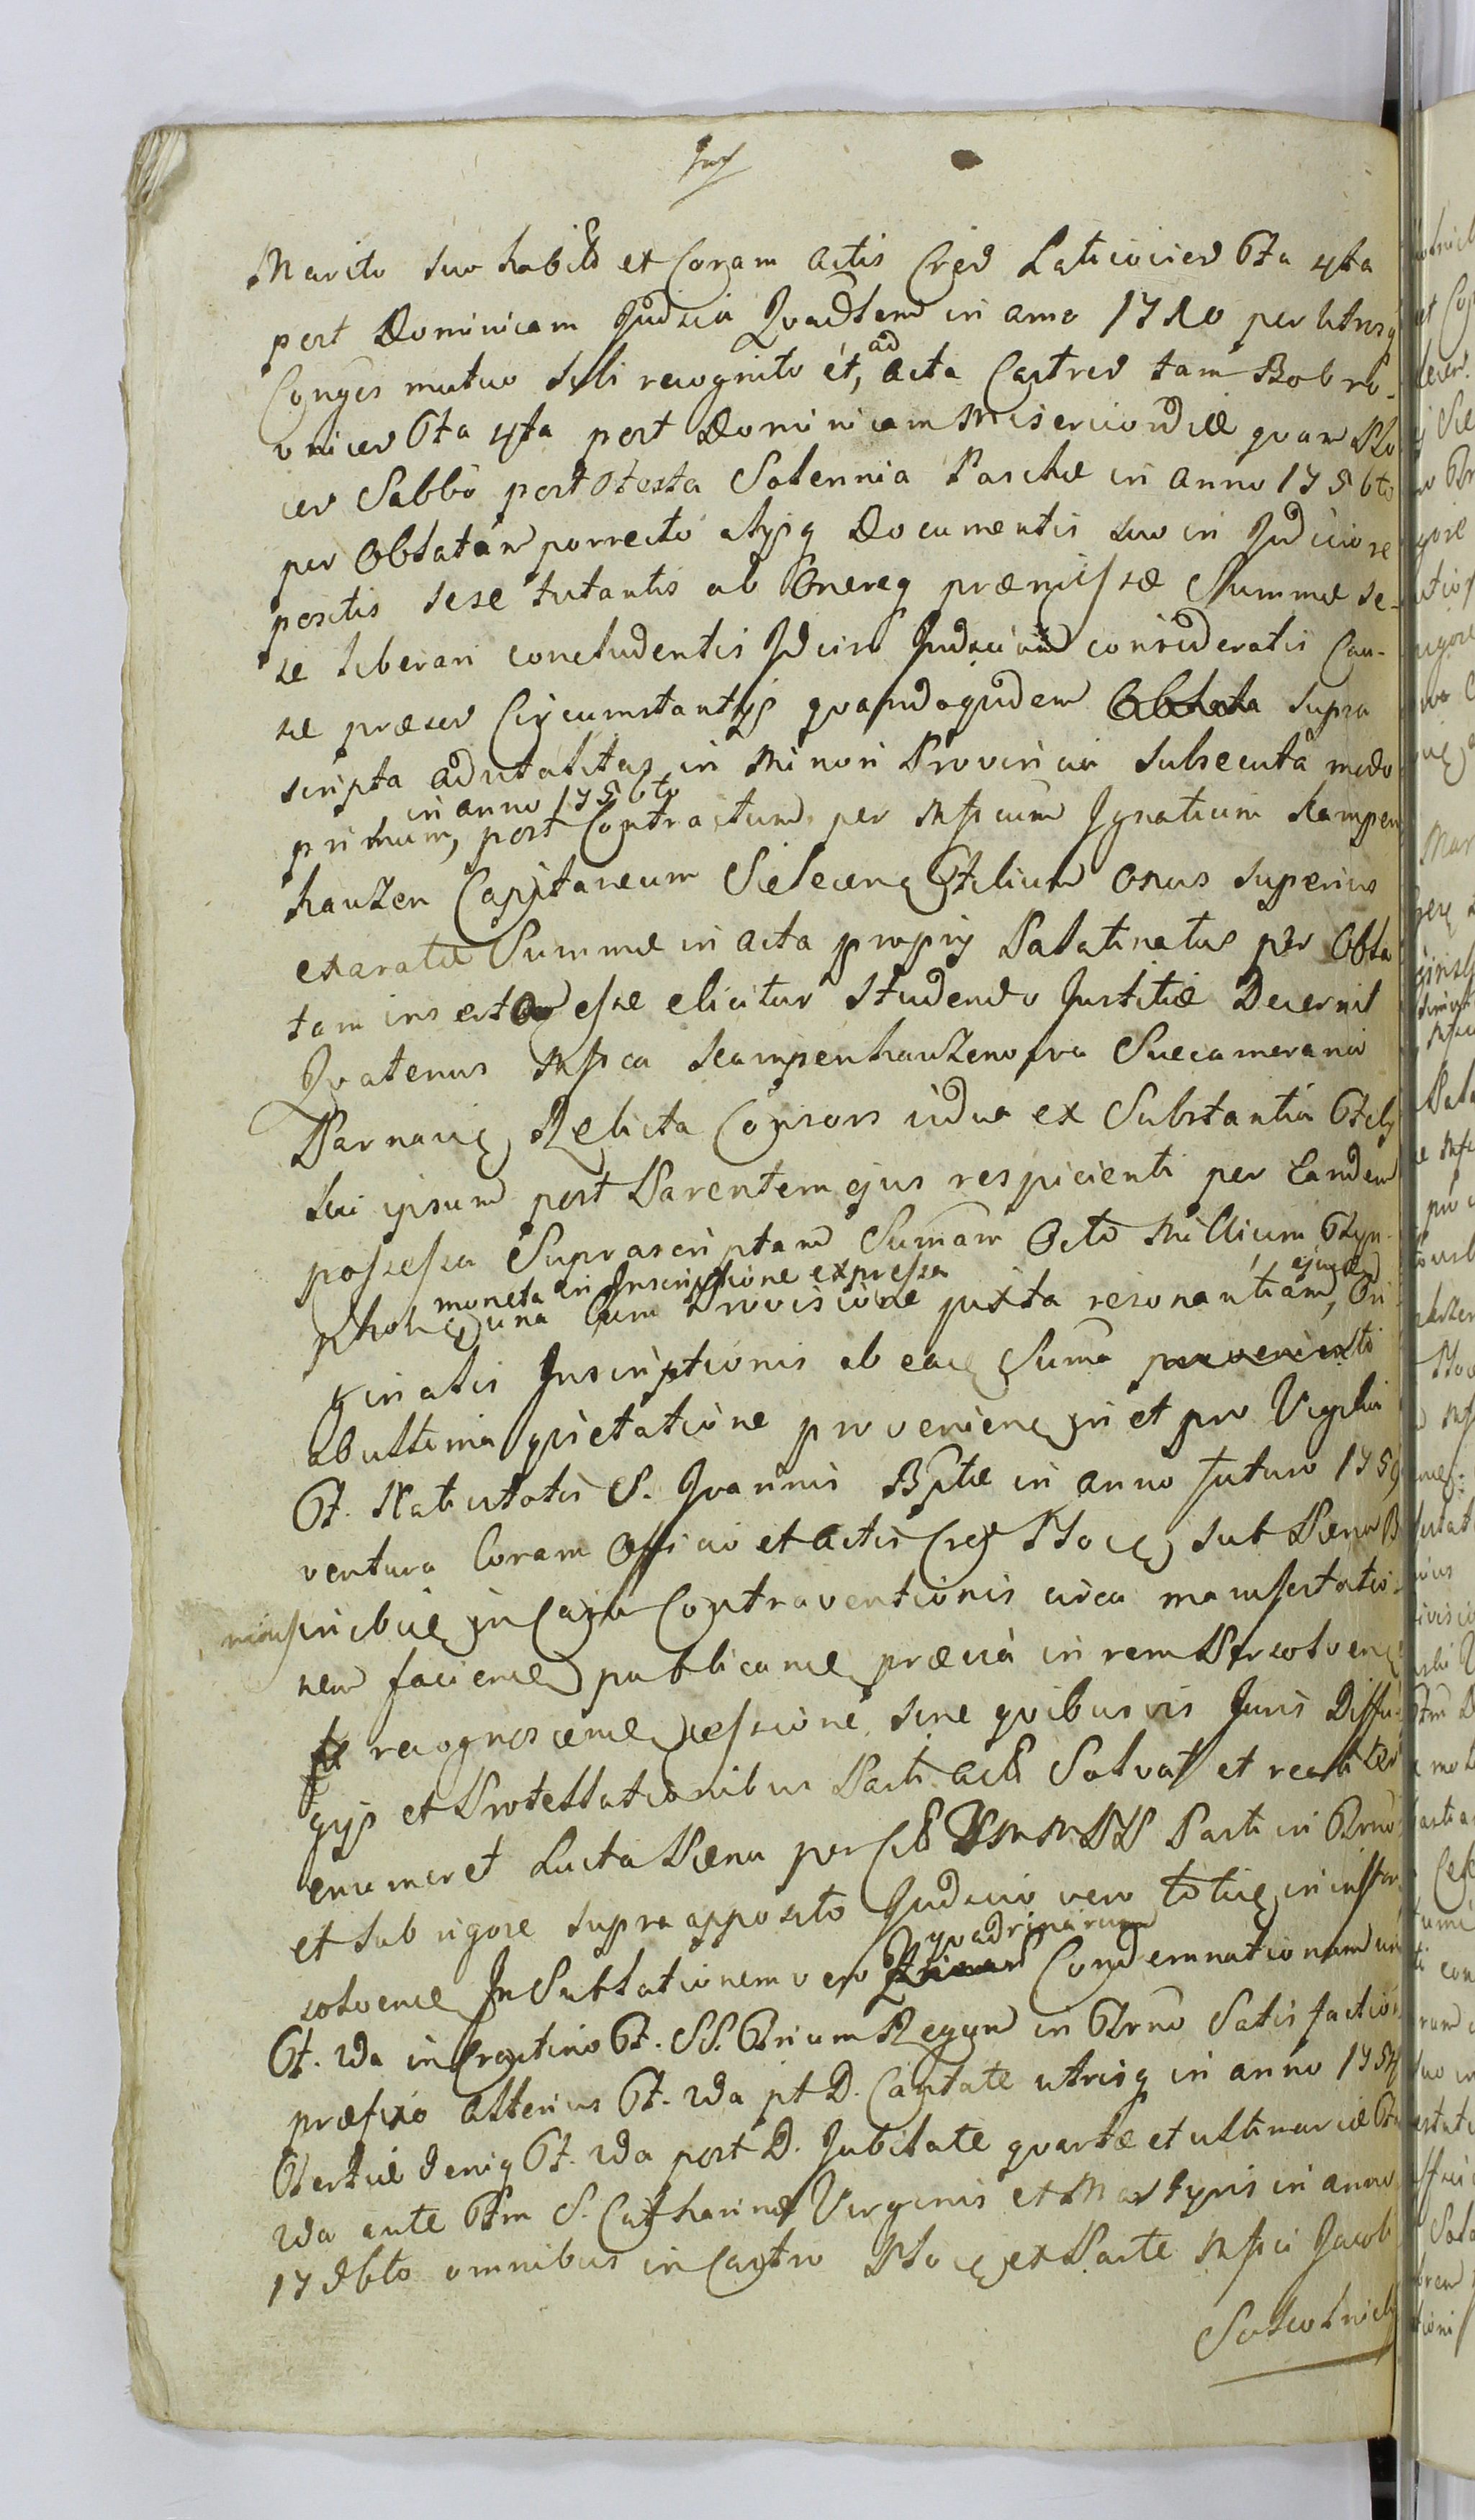 Marito suo habito et Coram actis Cred Laticovied Fta 4ta
post Dominicam Judica Quadlem in anno 1720 per Utrosq
Conges mutuo sibi recognito et, ad acta Castred tam Bobro-
vnicen Fta 4ta post Dominicam Misericordiæ quam Plo
cen Sabbo post Festa Solennia Paschæ in anno 1756to
per Oblatam porrecto alysq Documentis suo in Judicio re
positis sese tutantis ab Onereq præmissæ Summæ se-
se liberari concludentis Idcirco Judicium consideratis Cau-
sæ præsen Circumstantys quandoquidem Oblata supra
scripta advitalitas in Minori Provincia subsecuta modo
primum, in anno 1756to post Contractum per Mfcum Ignatium Kampen
hauzen Capitaneum Sielecen Filium Onus superius
exaratæ Summæ in acta propry Palatinatus per Obla
tam insertam esse elicitur studendo Justitiæ Decernit
Quatenus Mfca Kampenhauzenowa Succamerania
Parnavien Relicta Consors vidua ex Substantia Fily
sui ipsum post Parentem ejus respicienti per Eandem
possessa Suprascriptam Sumam Octo Millium Flen
Phol moneta in Inscriptione expressa una cum Provisione juxta resonantiam, ejusdem Ori
ginalis Inscriptionis ab eade Suma provenienti
ab ultima quietatione provenien in et pro Vigilia
Ft. Nativitatis S. Joannis Bptæ in anno futuro 1759
ventura Coram Officio et actis Cref Plocen sub Pœna B
in casu Contraventionis circa manifestatio-
nem facien publican prævia in rem Persolven
recognoscen cessione sine quibusvis Juris Diffu-
gys et Protestationibus Parti act Solvat et realiter
enumeret Lucta Pœna per Parti in Trno
et sub rigore supra apposito Judicio vero totid in instan
solven In Sublationem vero quadrinarum Condemnationum un
Ft. 2da in Crastino Ft. SS. Trium Regum in Trno Satisfactio
præfixo alterius Ft. 2da pt D. Cantate utrisq in anno 1754
Tertiæ deniq Ft. 2da post D. Jubilate quartæ et ultimariæ Ft
2da ante Ftm S. Catharinæ Virginis et Martyris in anno
1756to omnibus in Castro Plocen ex Parte Mfci Jacobi
Sokolnick